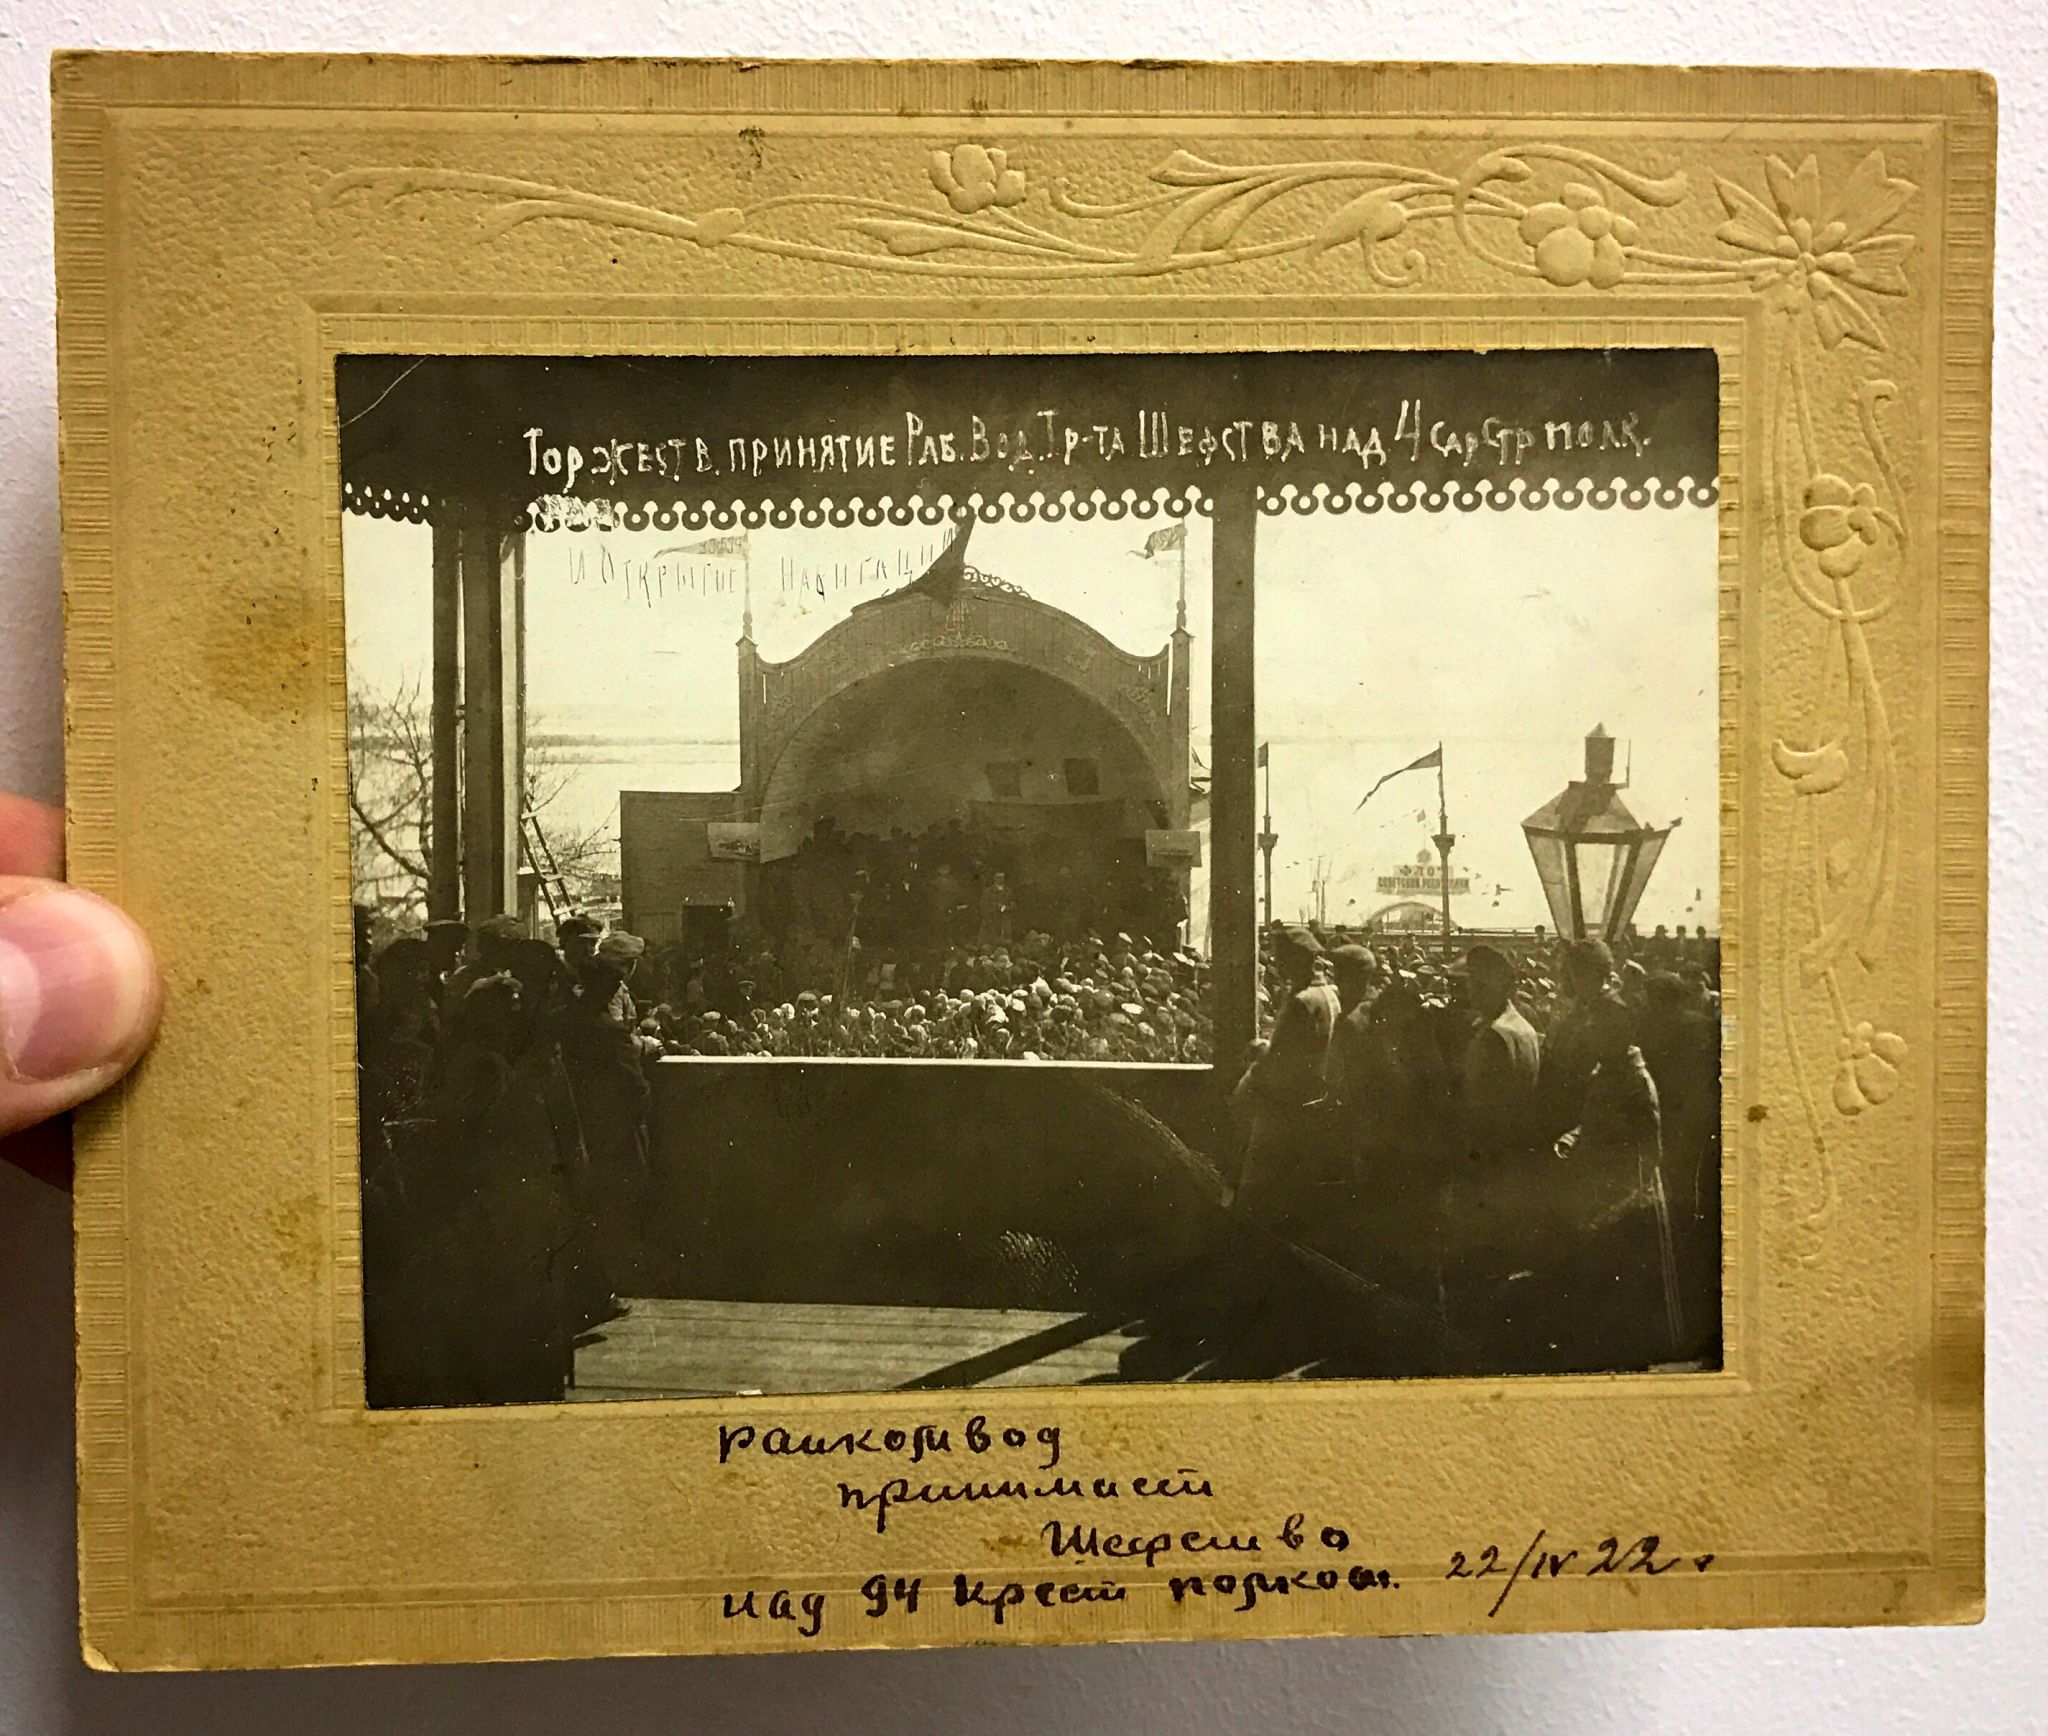 Торжеств. принятие Раб. Вод. Тр-та Шефства над 4 сар стр полк.
и Открытие навигации
РСФСР
ФЛОТ
СОВЕТСКОЙ РЕСПУБЛИКИ
Райкомвод
принимает
Шефство
над 94 Крест полком. 22/IV 22 г